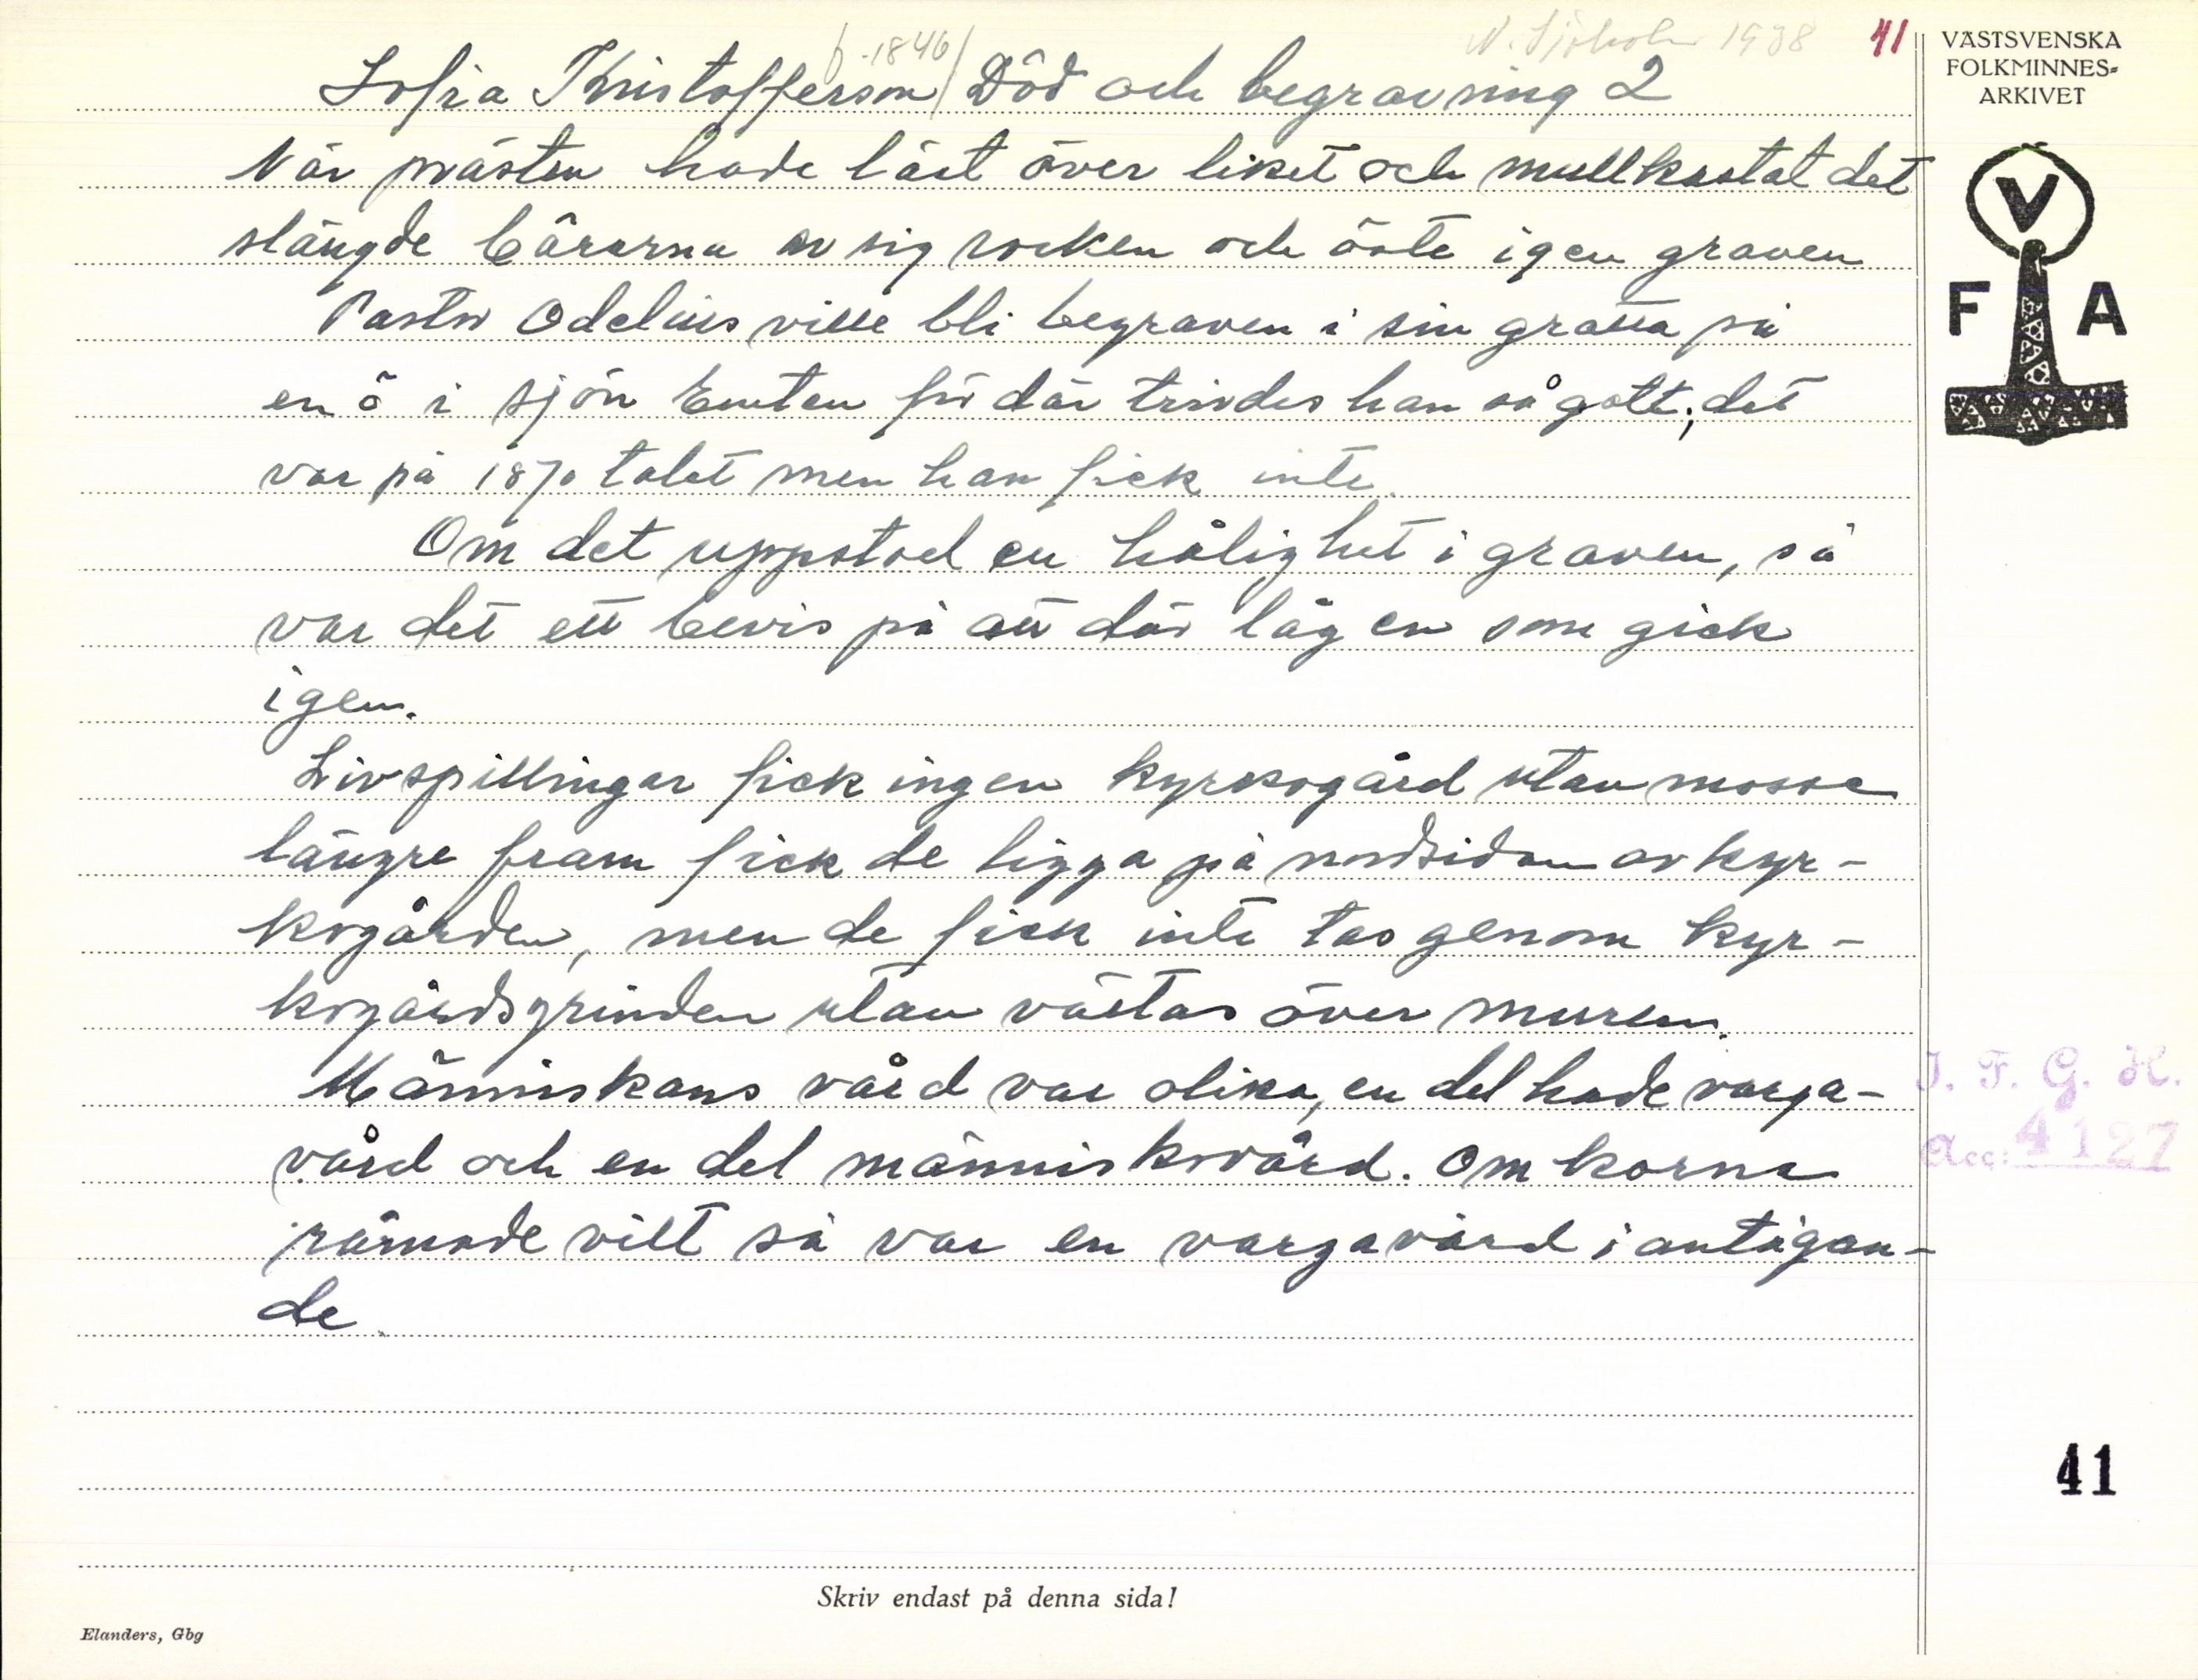 f. 1846
N. Sjöholm 1938
41
Sofia Kristofferson / Död och begravning 2
När prästen hade läst över liket och mullkastat det
slängde bårarna av sig rocken och öste igen graven
Pastor Odelius ville bli begraven i sin grotta på
en ö i sjön Emten för där trivdes han så gott; det
var på 1870 talet men han fick inte.
Om det uppstod en hålighet i graven, så
var det ett bevis på att där låg en som gick
igen.
Livspillingar fick ingen kyrkogård utan mosse
längre fram fick de ligga på nordsidan av kyr-
kogården, men de fick inte tas genom kyr-
kogårdsgrinden utan vältas över muren.
Människans vård var olika, en del hade varga-
vård och en del människovård. Om korna
råmade vilt så var en vargavård i antågan-
de.
VÄSTSVENSKA
FOLKMINNES-
ARKIVET
V
F A
I. F. G. H.
Acc: 4127
41
Skriv endast på denna sida!
Elanders, Gbg